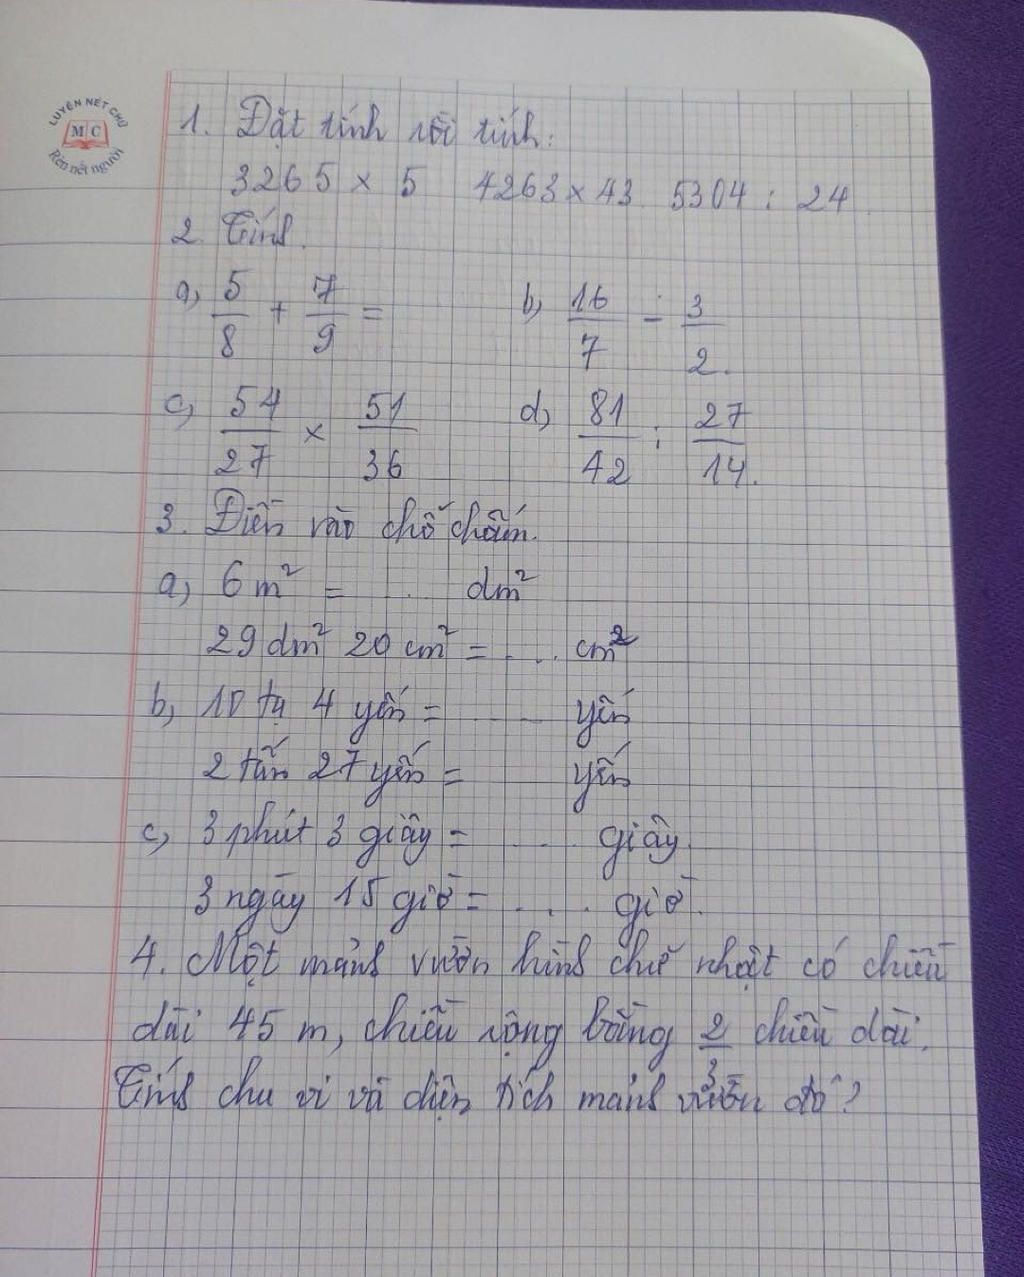 LUYỆN NÉT CHỮ
MC
Rèn nết người
1. Đặt tính rồi tính:
3265 x 5 4263 x 43 5304 : 24
2. Tính.
a, 5/8 + 7/9 = b, 16/7 - 3/2.
c, 54/27 x 51/36 d, 81/42 : 27/14.
3. Điền vào chỗ chấm.
a, 6 m² = ... dm²
29 dm² 20 cm² = ... cm²
b, 10 tạ 4 yến = ... yến
2 tấn 27 yến = ... yến
c, 3 phút 3 giây = ... giây.
3 ngày 15 giờ = ... giờ.
4. Một mảnh vườn hình chữ nhật có chiều
dài 45 m, chiều rộng bằng 2/3 chiều dài.
Tính chu vi và diện tích mảnh vườn đó?